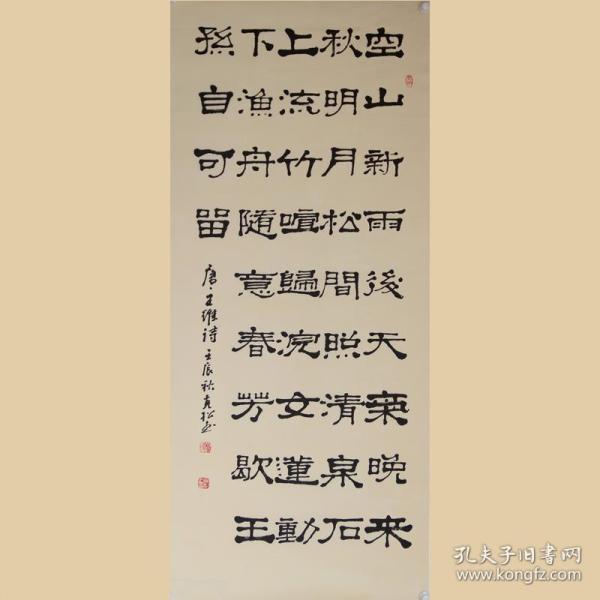 空山新雨後天氣晚来
秋明月松間照清泉石
上流竹喧歸浣女蓮動
下漁舟隨意春芳歇王
孫自可留
唐·王維詩 壬辰秋 松书
孔夫子旧书网
www.kongfz.com